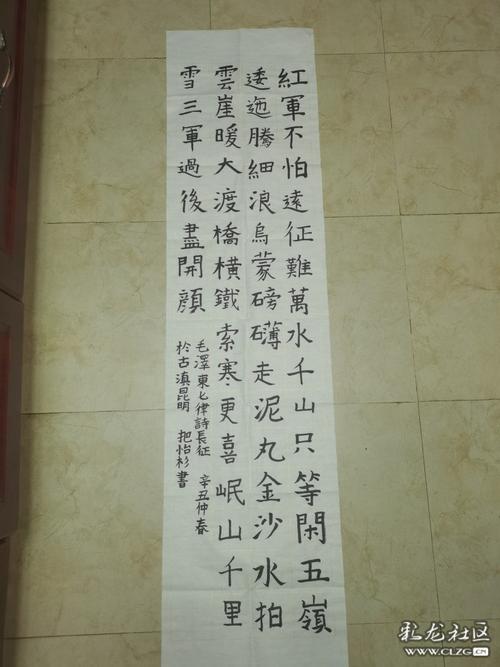 紅軍不怕遠征難萬水千山只等閑五嶺
逶迤騰細浪烏蒙磅礴走泥丸金沙水拍
雲崖暖大渡橋橫鐵索寒更喜岷山千里
雪三軍過後盡開顔
毛澤東七律詩長征 辛丑仲春
於古滇昆明 把怡杉書
彩龙社区
WWW.CLZG.CN